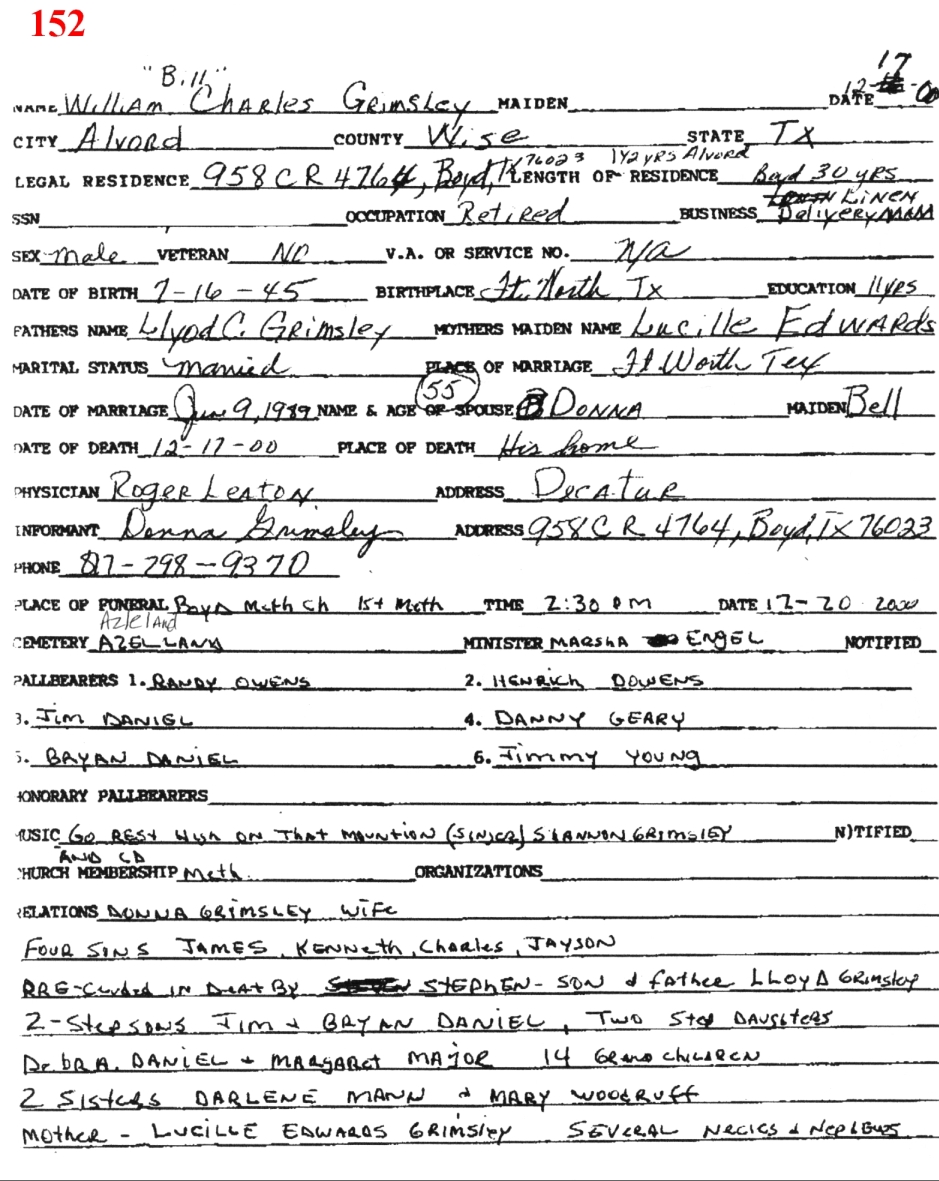 152
"Bill" 17
NAME William Charles Grimsley MAIDEN DATE 12- -00
CITY Alvord COUNTY Wise STATE TX
76023 1 1/2 yrs Alvord
LEGAL RESIDENCE 958 CR 4764, Boyd, Tx LENGTH OF RESIDENCE Boyd 30 yrs
Linen
SSN OCCUPATION Retired BUSINESS Delivery Man
SEX male VETERAN NO V.A. OR SERVICE NO. N/A
DATE OF BIRTH 7-16-45 BIRTHPLACE Ft. Worth, Tx EDUCATION 11 yrs
FATHERS NAME Llyod C. Grimsley MOTHERS MAIDEN NAME Lucille Edwards
MARITAL STATUS married PLACE OF MARRIAGE Ft Worth Tex
55
DATE OF MARRIAGE 9, 1989 NAME & AGE OF SPOUSE DONNA MAIDEN Bell
DATE OF DEATH 12-17-00 PLACE OF DEATH His home
PHYSICIAN Roger Leaton ADDRESS Decatur
INFORMANT Donna Grimsley ADDRESS 958 CR 4764, Boyd, TX 76023
PHONE 817-298-9370
PLACE OF FUNERAL Boyd Meth Ch 1st Meth TIME 2:30 PM DATE 12-20 2000
Azleland
CEMETERY AZELLAND MINISTER MARSHA ENGEL NOTIFIED
PALLBEARERS 1. RANDY OWENS 2. HENRICH DOWENS
3. JIM DANIEL 4. DANNY GEARY
5. BRYAN DANIEL 6. Jimmy YOUNG
HONORARY PALLBEARERS
MUSIC GO REST HIGH ON THAT MOUNTION (SINGER) SHANNON GRIMSLEY N)TIFIED
AND CD
CHURCH MEMBERSHIP Meth. ORGANIZATIONS
RELATIONS DONNA GRIMSLEY WIFE
FOUR SINS JAMES, KENNETH, Charles, JAYSON
PRE-Ceded IN Deat By STEPHEN - SON & father LLOYD GRIMSLEY
2-StepSONS JIM & BRYAN DANIEL, TWO Step DAUGHTERS
DebRA. DANIEL & MARGARET MAJOR 14 GRAND CHILDREN
2 Sisters DARLENE MANN & MARY WOODRUFF
Mother - LUCILLE EDWARDS GRIMSLEY SEVERAL NECIES & NEPHEWS